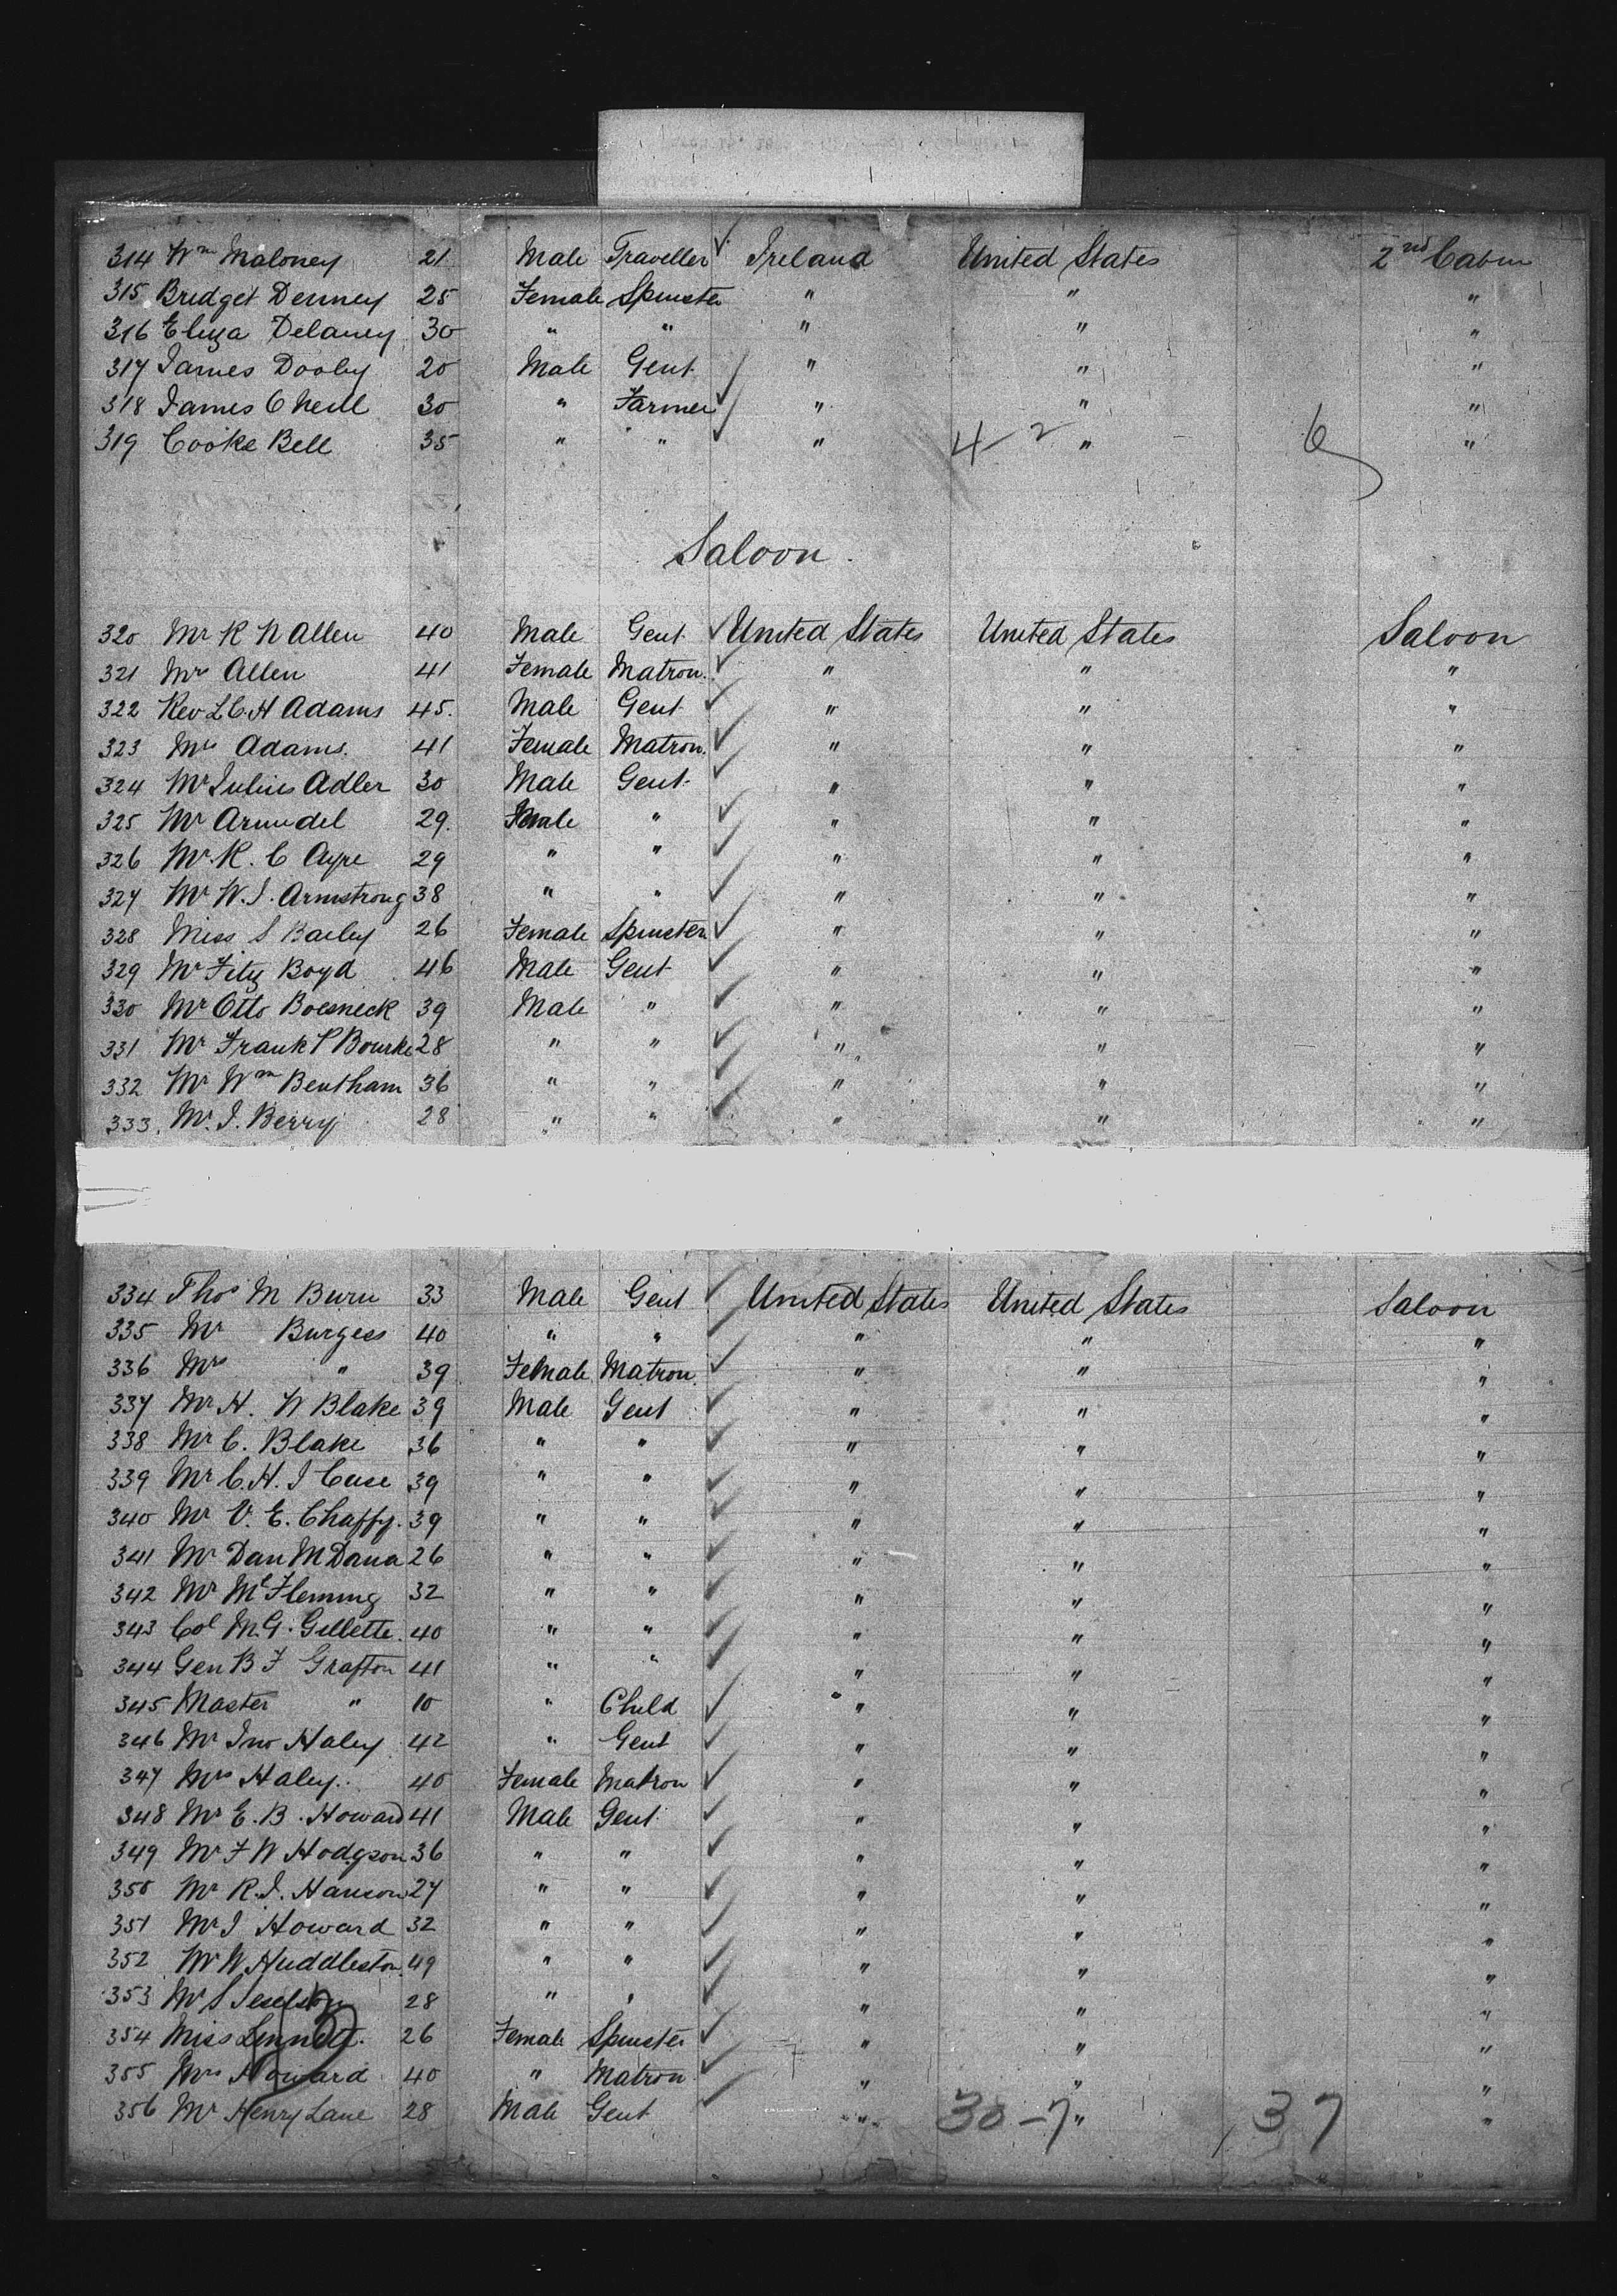 314 Wm Maloney 21 Male Traveller ✓ Ireland United States 2nd Cabin
315 Bridget Denney 25 Female Spinster " " "
316 Eliza Delaney 30 " " " " "
317 James Dooley 20 Male Gent " " "
318 James O'Neill 30 " Farmer ✓ " " "
319 Cooke Bell 35 " " ✓ " 4 - 2 " 6 "
Saloon.
320 Mr R N Allen 40 Male Gent ✓ United States United States Saloon
321 Mrs Allen 41 Female Matron. ✓ " " "
322 Rev L C. H Adams 45. Male Gent ✓ " " "
323 Mrs Adams. 41 Female Matron. ✓ " " "
324 Mr Julius Adler 30 Male Gent ✓ " " "
325 Mr Arundel 29. Male " ✓ " " "
326 Mr. R. C Ayre 29 " " ✓ " " "
327 Mr W. J. Armstrong 38 " " ✓ " " "
328 Miss S Bailey 26 Female Spinster ✓ " " "
329 Mr Fitz Boyd 46 Male Gent ✓ " " "
330 Mr Otto Boesneck 39 Male " ✓ " " "
331 Mr Frank P Bourke 28 " " ✓ " " "
332 Mr Wm Bentham 36 " " ✓ " " "
333. Mr. J. Berry 28 " " ✓ " " "
334 Thos M Burn 33 Male Gent ✓ United States United States Saloon
335 Mr Burgess 40 " " ✓ " " "
336 Mrs " 39 Female Matron. ✓ " " "
337 Mr H. W Blake 39 Male Gent ✓ " " "
338 Mr C. Blake 36 " " ✓ " " "
339 Mr C. H. J Case 39 " " ✓ " " "
340 Mr V. E. Chaffy. 39 " " ✓ " " "
341 Mr Dan M Dana 26 " " ✓ " " "
342 Mr Mc Fleming 32 " " ✓ " " "
343 Col M. G. Gillette. 40 " " ✓ " " "
344 Gen B F Grafton 41 " " ✓ " " "
345 Master " 10 " Child ✓ " " "
346 Mr Jno Haley 42 " Gent ✓ " " "
347 Mrs Haley. 40 Female Matron ✓ " " "
348 Mr E. B. Howard 41 Male Gent ✓ " " "
349 Mr F W Hodgson 36 " " ✓ " " "
350 Mr R. J. Hanson 27 " " ✓ " " "
351 Mr J Howard 32 " " ✓ " " "
352 Mr W Huddleston. 49 " " ✓ " " "
353 Mr S 28 " " ✓ " " "
354 Miss Lennett. 26 Female Spinster ✓ " " "
355 Mrs Howard 40 " Matron ✓ " " "
356 Mr Henry Lane 28 Male Gent ✓ " 30 - 7 " 37 "